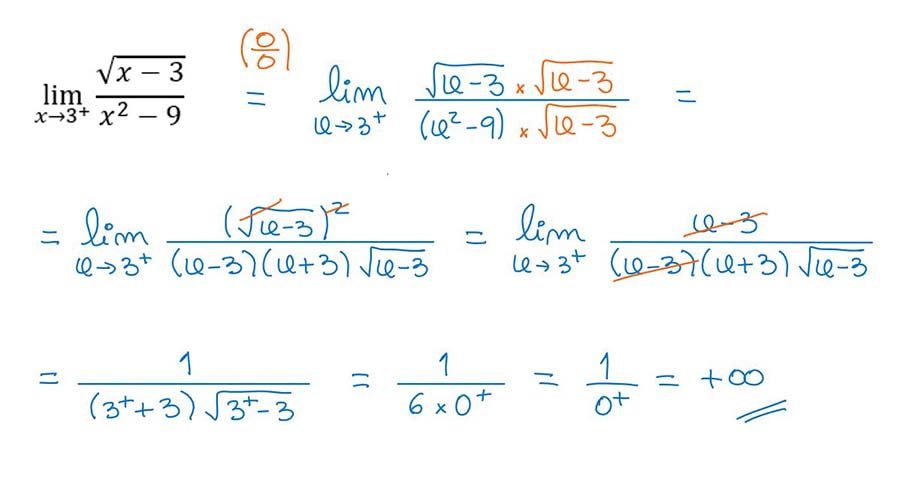 lim x→3⁺ √(x − 3) / (x² − 9) (0/0) = lim x→3⁺ (√(x−3) × √(x−3)) / ((x²−9) × √(x−3)) =
= lim x→3⁺ (√(x−3))² / ((x−3)(x+3)√(x−3)) = lim x→3⁺ (x−3) / ((x−3)(x+3)√(x−3))
= 1 / ((3⁺+3)√(3⁺−3)) = 1 / (6 × 0⁺) = 1 / 0⁺ = +∞